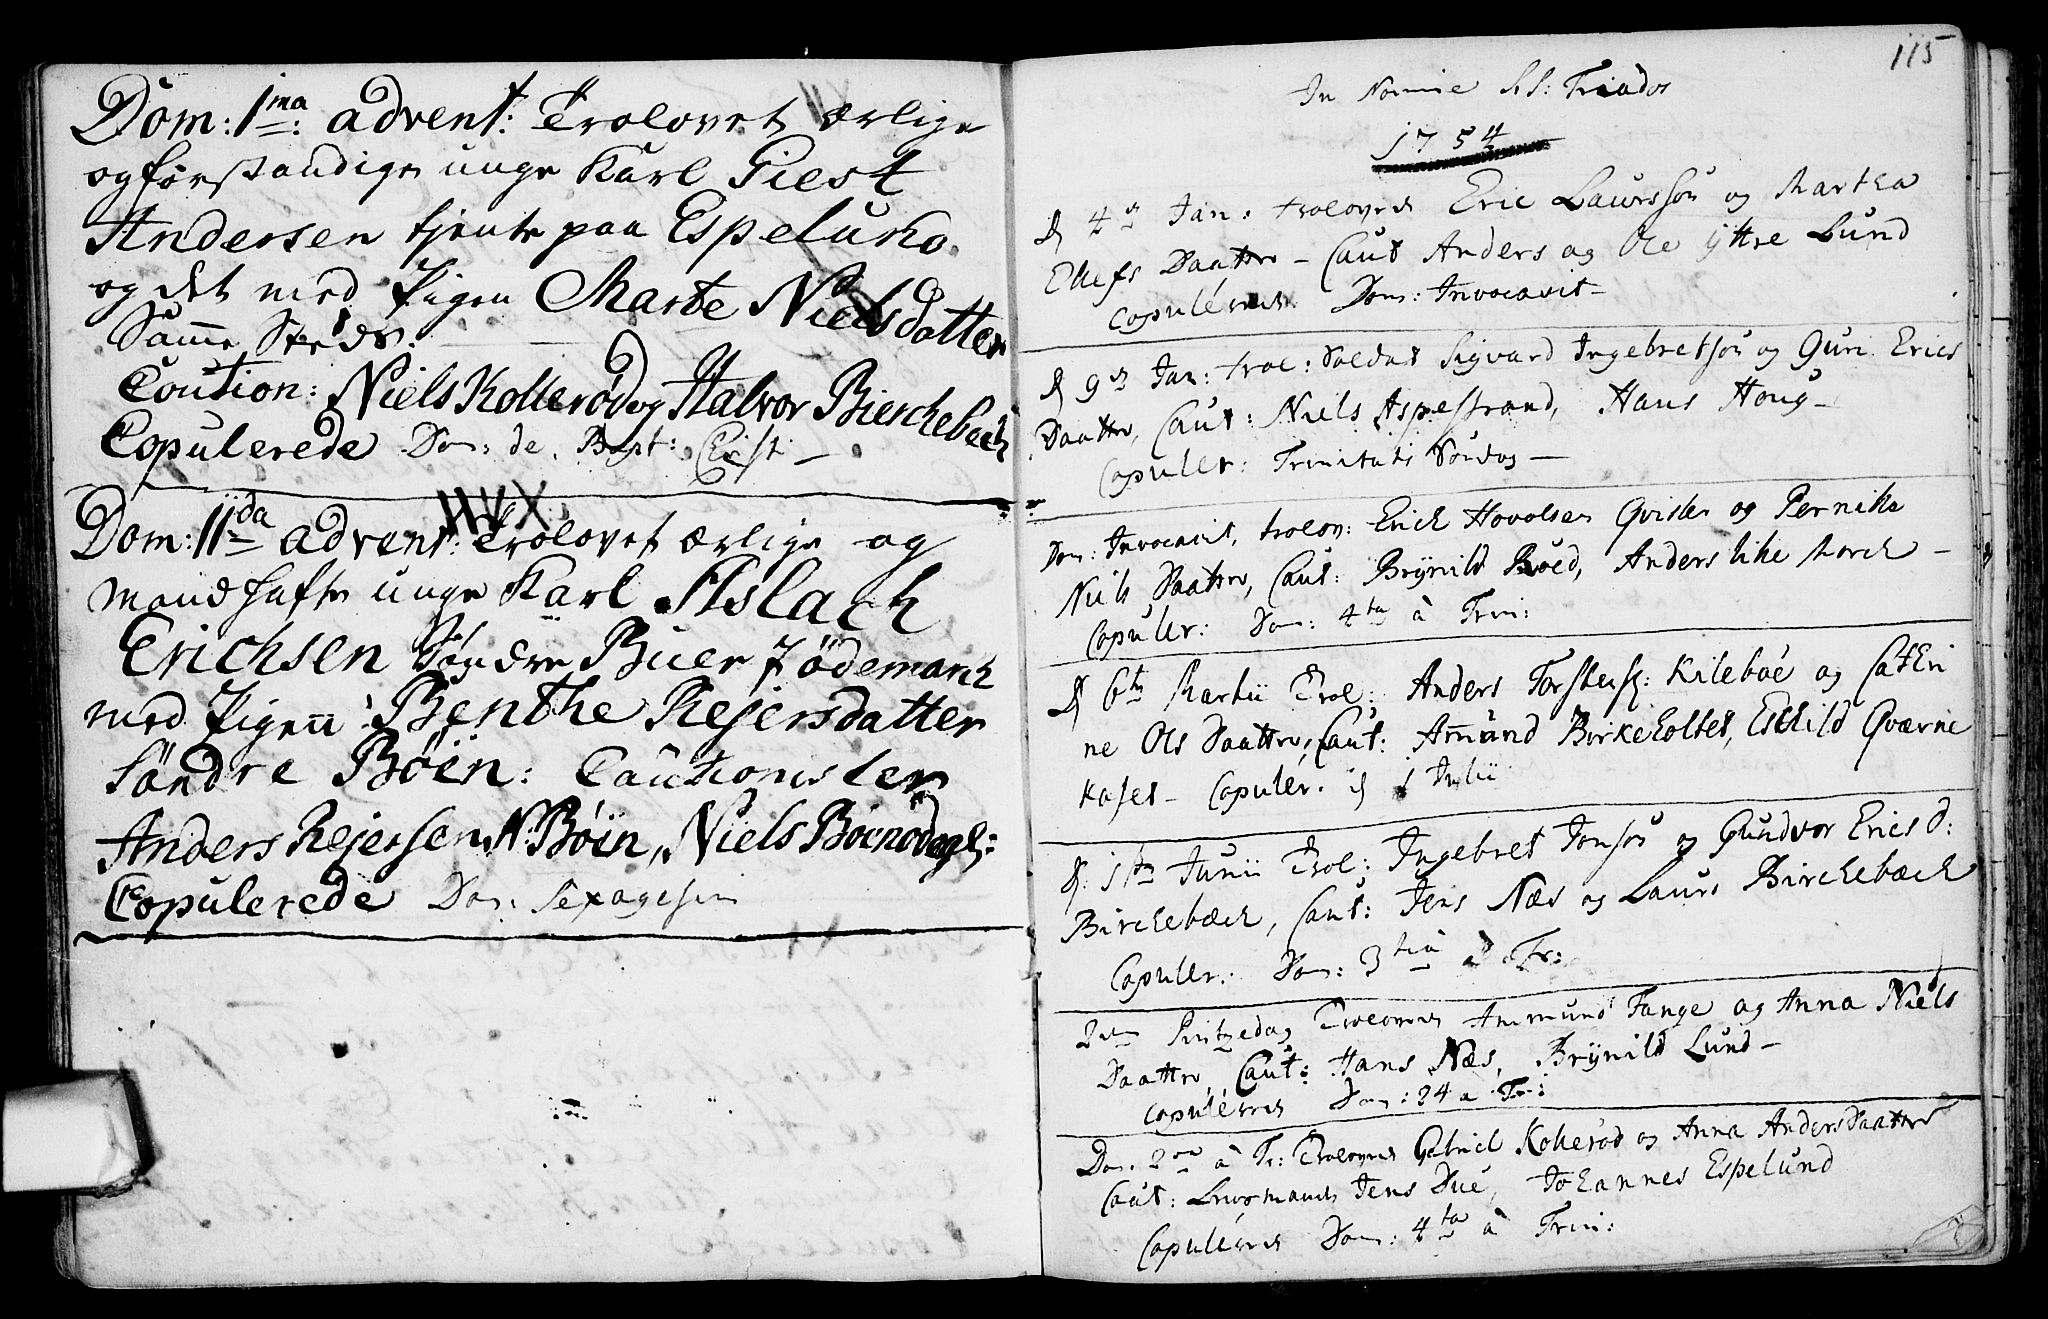 Dom: 1ma: advent: Trolovet ærlige
og forstandige unge Karl Giest
Andersen tjente paa Espelund
og det med Pigen Marte Nielsdatter
Samme Steds:
Coution: Niels Kollerød og Halvor Bierchebech
Copulerede Dom: de Bapt: Christi
Dom: IIda advent: Trolovet ærlige og
mandhafte unge Karl Aslach
Erichsen Søndre Buer i ødemarck
med Pigen: Benthe Rejersdatter
Søndre Bøen: Cautionister
Anders Rejersen N: Bøen, Niels Bøenødegl:
Copulerede Dom: Sexagesim
115
In Nomine SS: Triados
1754
d 4de Jan: trolovede Eric Laursson og Martha
Ellefs Daatter - Caut Anders og Ole yttre Lund
copulérede Dom: Invocavit -
d 9de Jan: trol: Soldat Sigvard Ingebretson og Guri Erics
Daatter, Caut: Niels Aspestrand, Hans Houg -
Copuler: Trinitatis Søndag -
Dom: Invocavit, trolov: Erich Hovolsen Qvisler og Pernike
Niels Daatter, Caut: Brÿnild Røed, Anders like March -
Copuler: Dom: 4ta à Trin:
d 6te Martii Trol: Anders Torstens: Kileboe og Cathri
ne Ols Daatter, Caut: Amund Birkeholtet, Eskild Qværne
kaset - Copulér. d 1 Julii
d: 1ste Junii Trol: Ingebret Jonson og Gundvor Erics d:
Birchebæch, Caut: Jens Næs og Laurs Birchebæch
Copuler: Dom: 3tia à Tr:
2den Pintzedag Trolovede Ammund Tange og Anna Niels
Daatter, Caut: Hans Næs, Brÿnild Lund -
copulérede Dom: 24 a Tr:
Dom. 2da à Tr: Trolovede Gabriel Kollerød og Anna Anders Daatter
Caut: Jens Due, Johannes Espelund
Copulérede Dom: 4ta à Trin: